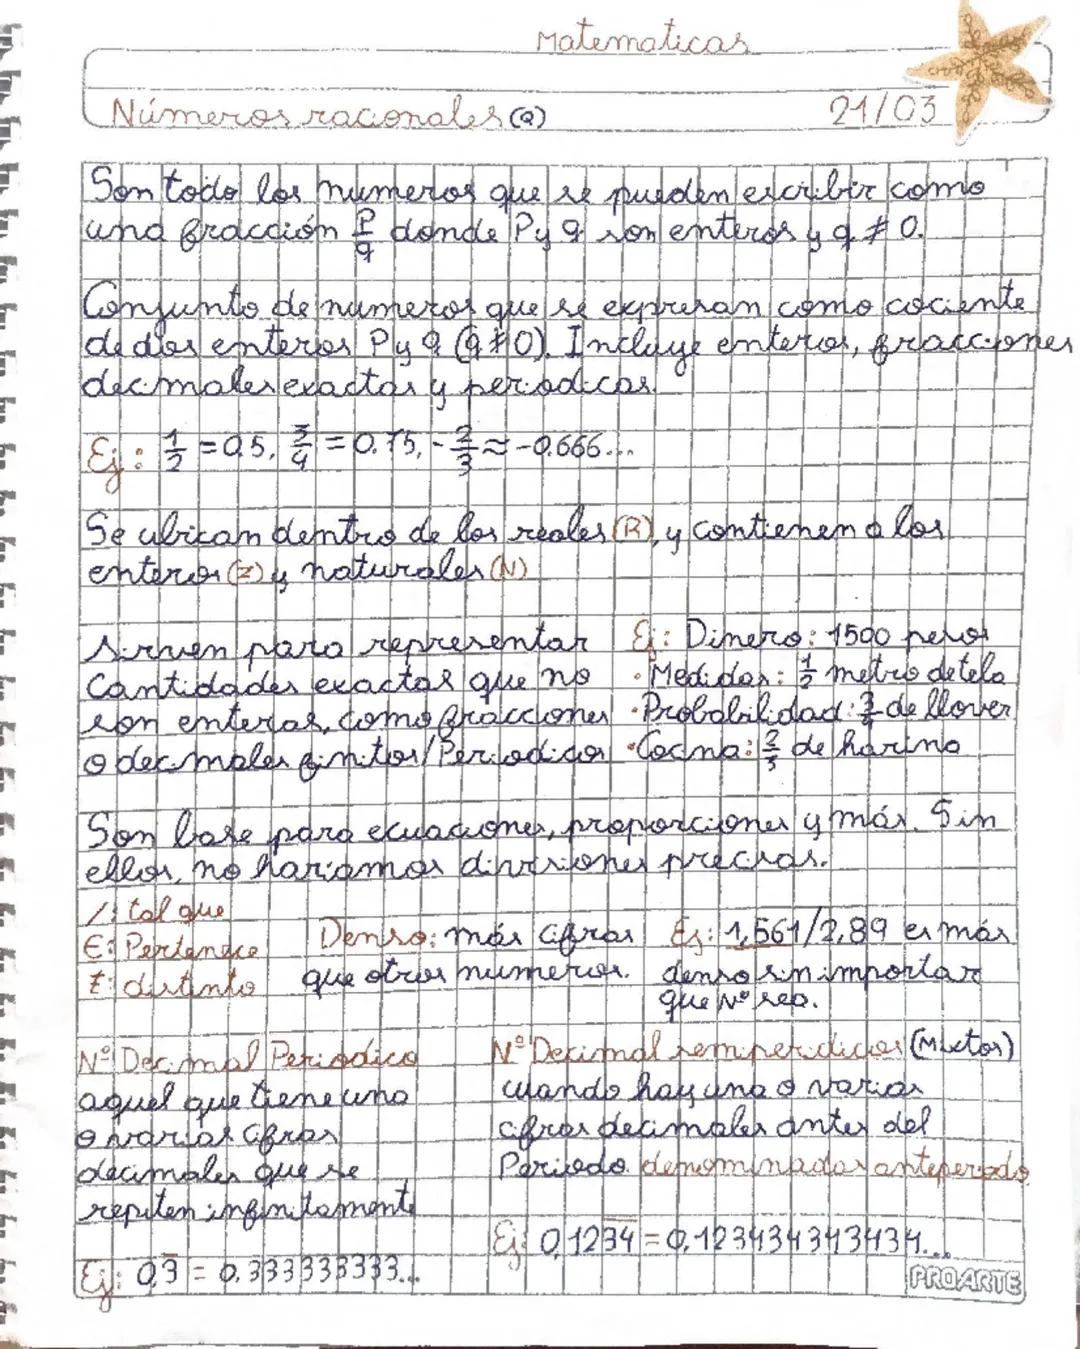 Matematicas
Números racionales (Q) 21/03
Son todo los numeros que se pueden escribir como
una fracción P/q donde P y q son enteros y q ≠ 0.
Conjunto de numeros que se expresan como cociente
de dos enteros P y q (q ≠ 0). Incluye enteros, fracciones
decimales exactos y periodicos.
Ej: 1/2 = 0.5, 3/4 = 0.75, -2/3 ≈ -0.666...
Se ubican dentro de los reales (R), y contienen a los
enteros (Z) y naturales (N)
Sirven para representar
cantidades exactas que no
son enteras, como fracciones
o decimales finitos/Periodicos
Ej: Dinero: 1500 pesos
· Medidas: 1/2 metro de tela
· Probabilidad: de llover
· Cocina: 2/3 de harina
Son base para ecuaciones, proporciones y más. Sin
ellos, no hariamos divisiones precisas.
/: tal que
∈: Pertenece
≠: distinto
Denso: más cifras
que otros numeros.
Ej: 1,561/2,89 es más
denso sin importar
que Nº sea.
Nº Decimal Periodico
aquel que tiene una
o varias cifras
decimales que se
repiten infinitamente
Ej: 0,3̅ = 0.333333333...
Nº Decimal semiperidicos (Mixtos)
cuando hay una o varias
cifras decimales antes del
Periodo denominadas anteperiodo
Ej: 0,123̅4̅ = 0,123434343434...
PROARTE